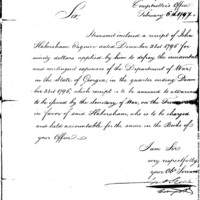 Comptroller's Office
February 6th 1797
Sir,
I transmit inclosed a receipt of John
Habersham Esquire dated December 31st 1796 for
ninety dollars applied by him to defray the
and contingent expenses of the Department of War,
in the State of Georgia, in the quarter ending Decem
ber 31st 1796, which receipt is to be annexed to
to be issued by the Secretary of War, on the Treasurer
in favor of said Habersham, who is to be charged
and held accountable for the same in the Books of
your Office.
I am Sir
very respectfully,
your Obt Servant